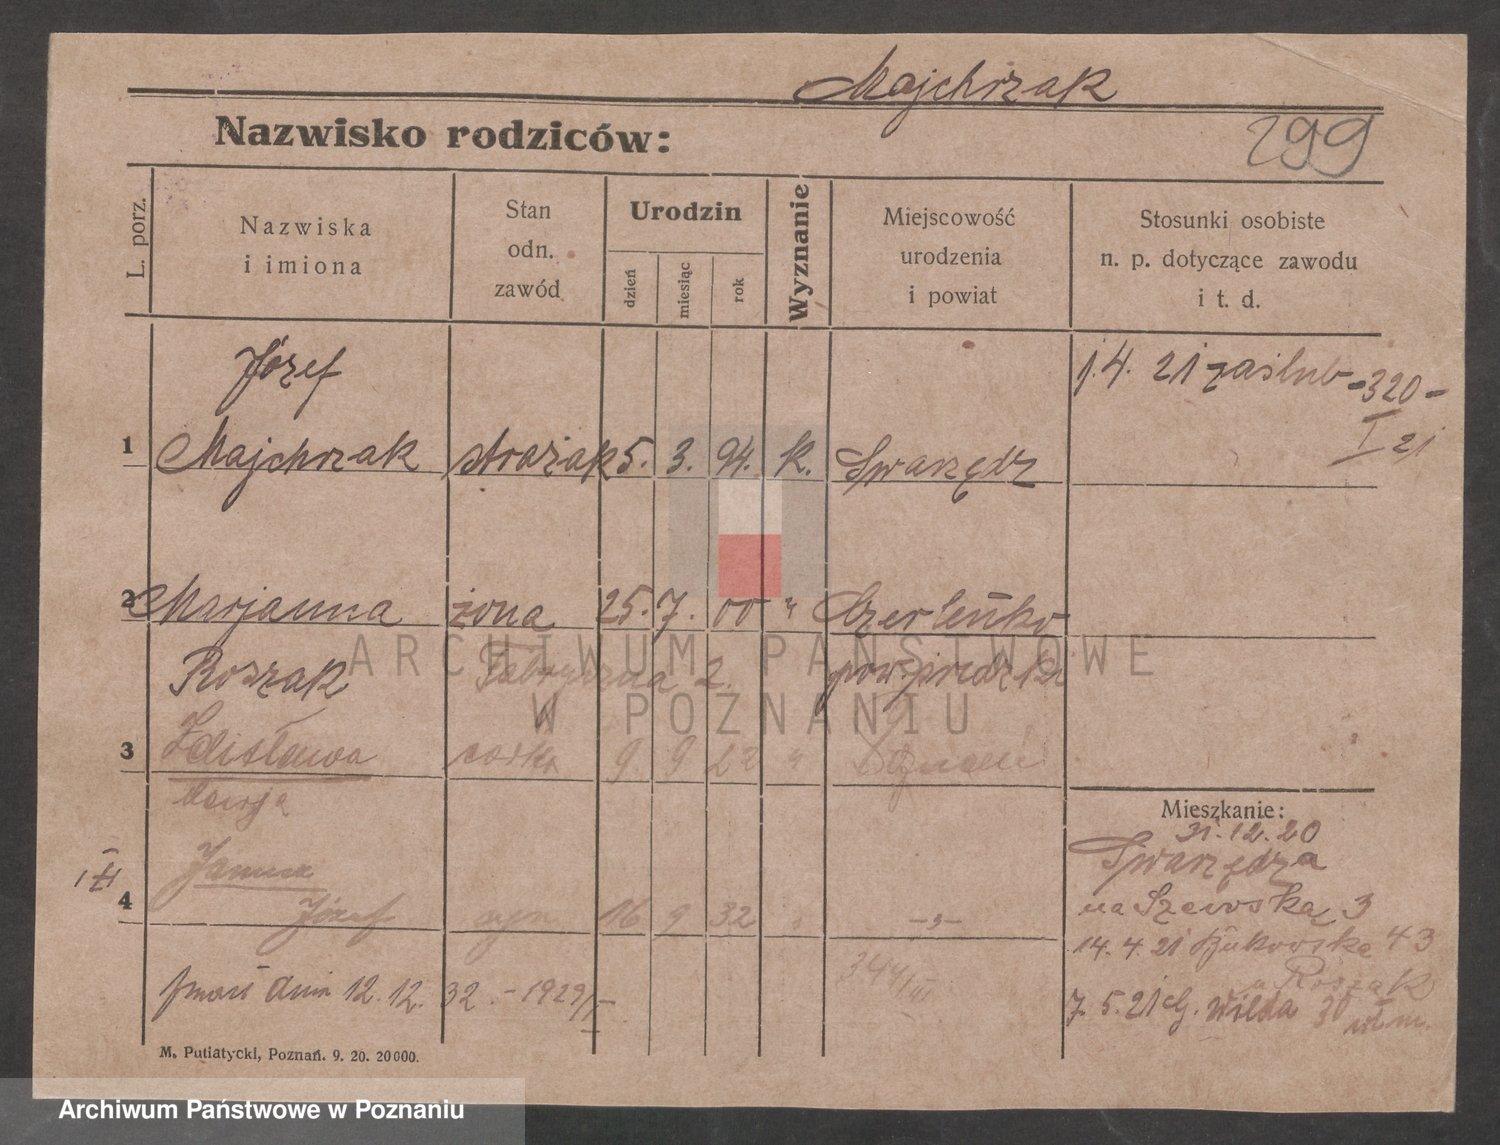 Majchrzak
Nazwisko rodziców:
299
L. porz.
Nazwiska
i imiona
Stan
odn.
zawód
Urodzin
dzień
miesiąc
rok
Wyznanie
Miejscowość
urodzenia
i powiat
Stosunki osobiste
n. p. dotyczące zawodu
i t. d.
Józef
1 Majchrzak strażak 5. 3. 94. k. Swarzędz
1.4. 21 zaślub -320-
I 21
2 Marjanna żona 25. 7. 00 "
Roszak
3 Zdisława córka 9 9 22 "
Mieszkanie:
31.12.20
Swarzędza
na Szewską 3
14. 4. 21 Bukowska 43
u Roszak
7. 5. 21 G. Wilda 30
4 Józef syn 16 9 32 -"-
zmarł dnia 12. 12. 32. - 1929/I
344/III
M. Putiatycki, Poznań. 9. 20. 20000.
ARCHIWUM PAŃSTWOWE
W POZNANIU
Archiwum Państwowe w Poznaniu